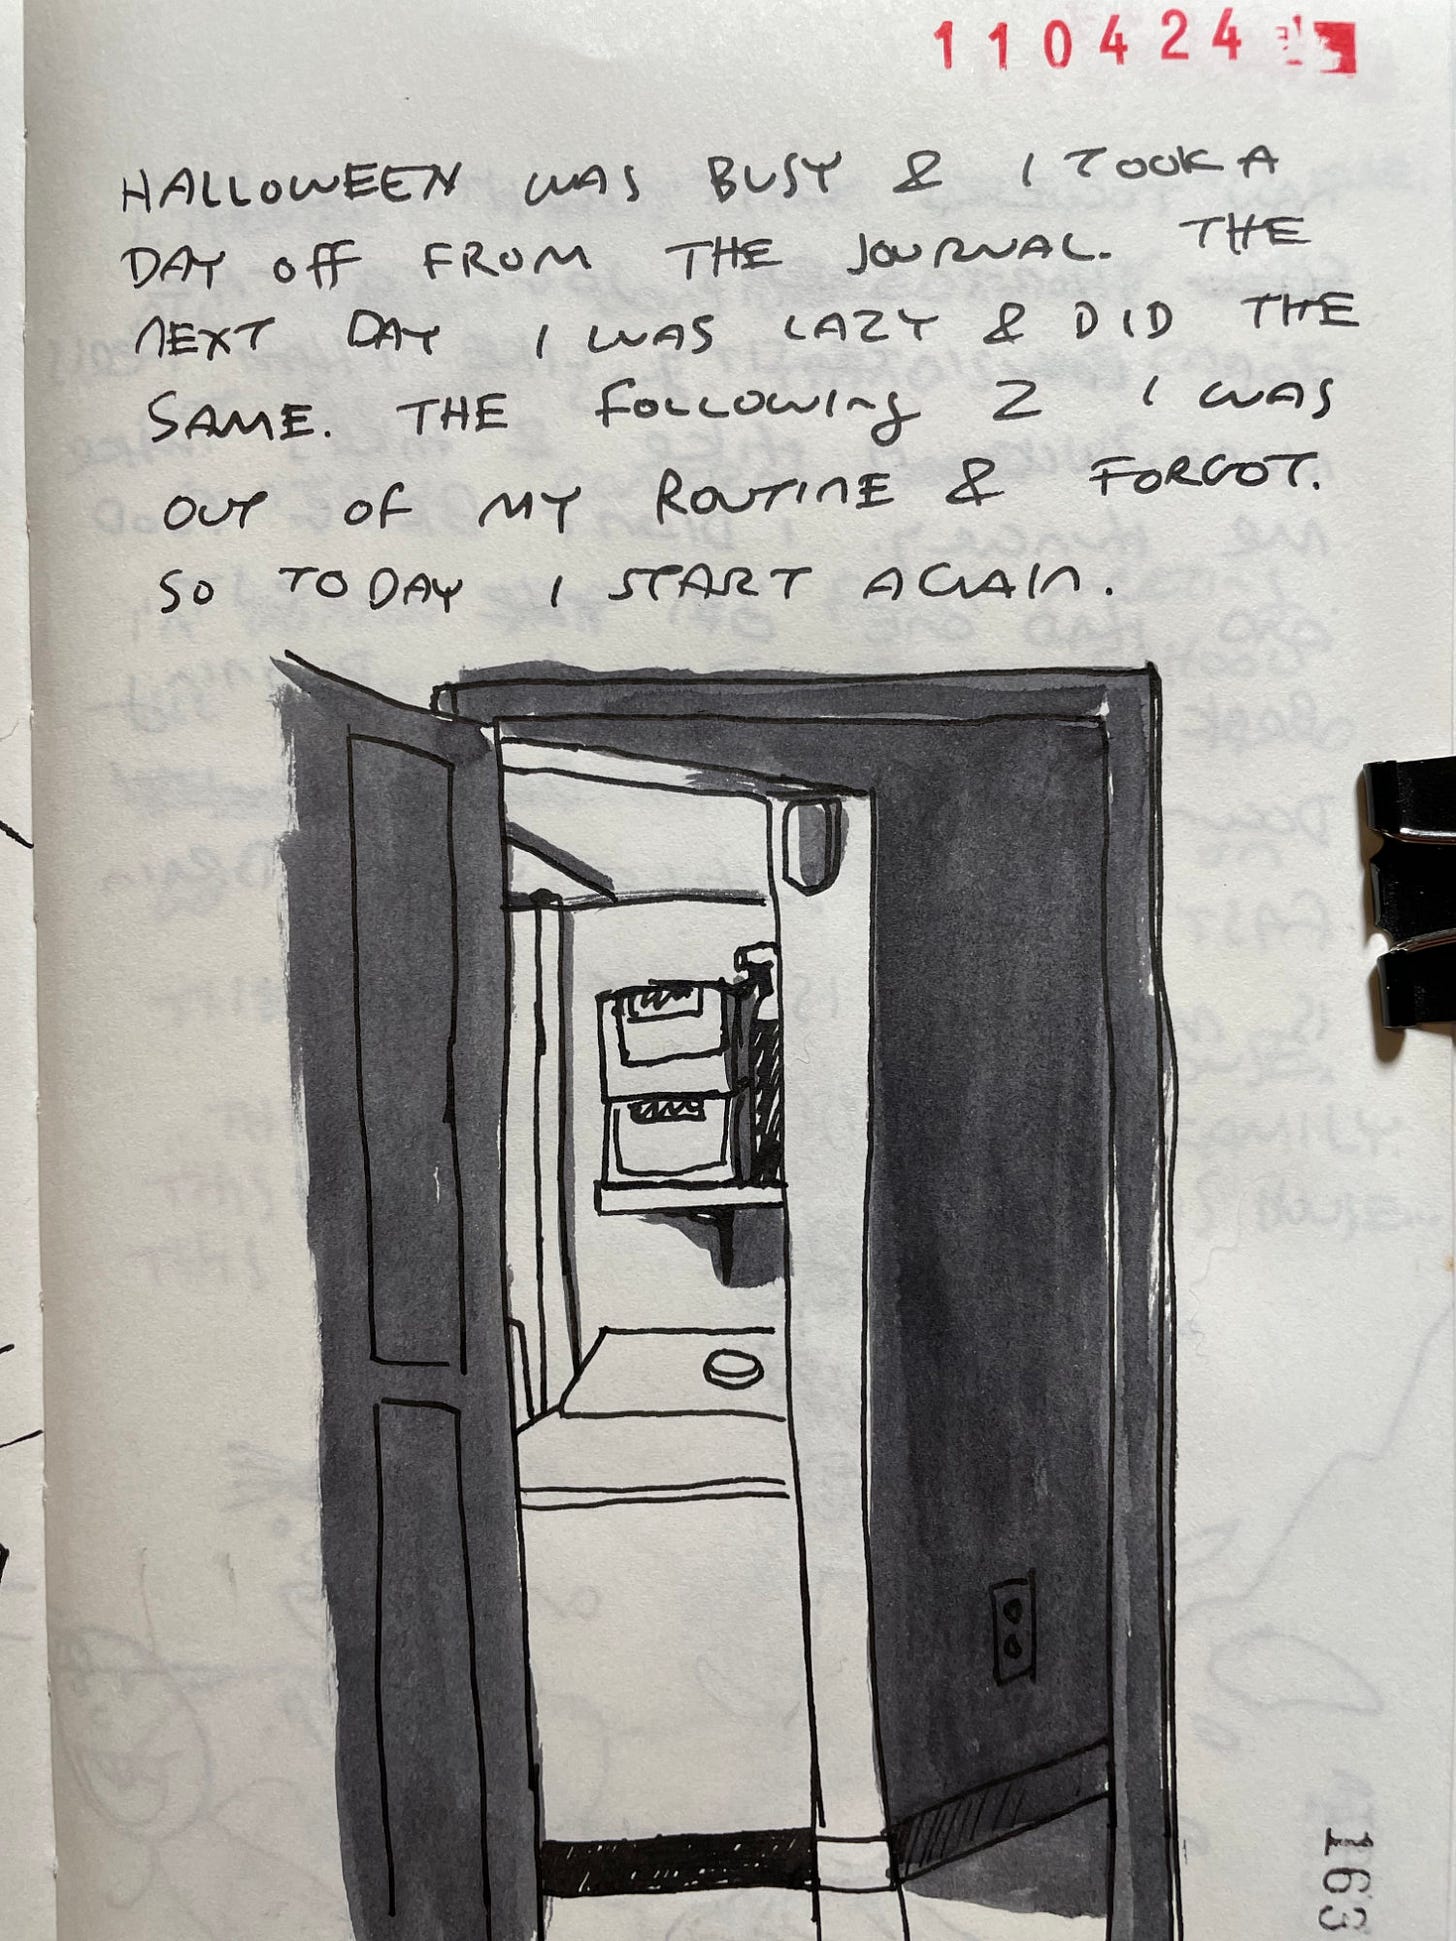 110424
HALLOWEEN WAS BUSY & I TOOK A
DAY OFF FROM THE JOURNAL. THE
NEXT DAY I WAS LAZY & DID THE
SAME. THE FOLLOWING 2 I WAS
OUT OF MY ROUTINE & FORGOT.
SO TODAY I START AGAIN.
163